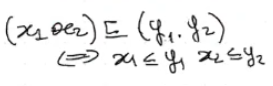 (x₁ x₂) ⊑ (y₁, y₂)
⟺ x₁ ≤ y₁ x₂ ≤ y₂